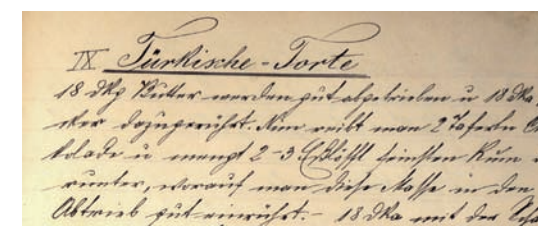 IX Türkische-Torte
18 dkg Butter werden gut abgetrieben u 18 dka
cker dazugerührt. Nun reibt man 2 Taferln
kolade u mengt 2-3 Eßlöffl feinsten Rum
runter, worauf man diese Masse in den
Abtrieb gut einrührt.- 18 dka mit der